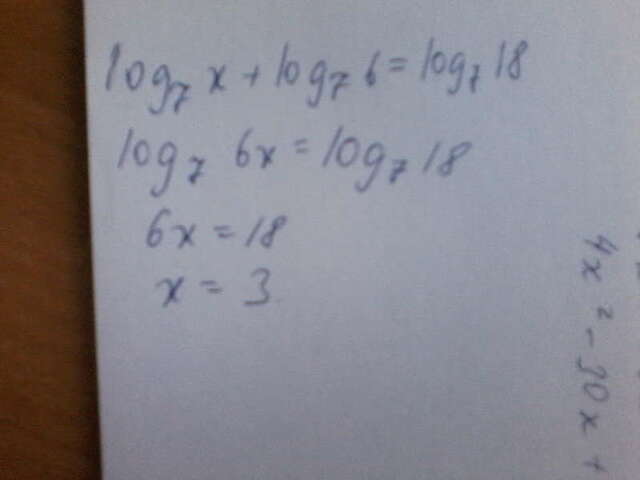 log₇ x + log₇ 6 = log₇ 18
log₇ 6x = log₇ 18
6x = 18
x = 3
4x² - 90x +